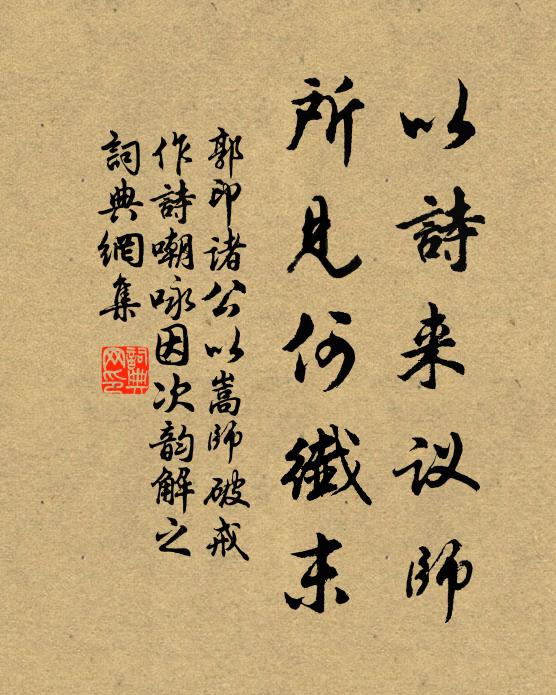 以詩来议師
所見何纖末
郭印諸公以嵩師破戒
作詩嘲咏因次韵解之
詞典網集
詞典
网印